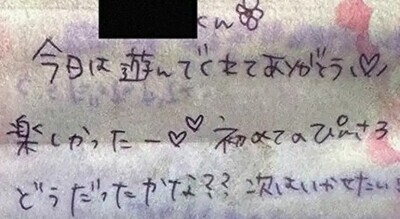 くん
今日は遊んでくれてありがとう♡
楽しかったー♡♡ 初めてのぴんさろ
どうだったかな?? 次はいかせたい!